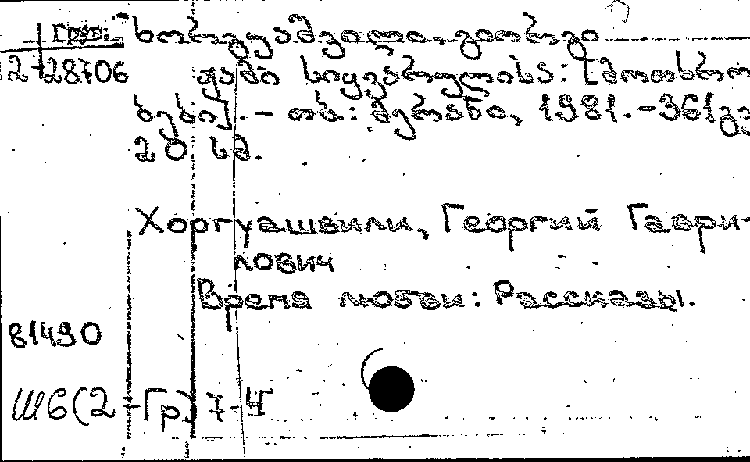 Груз. ხორგუაშვილი, გიორგი
2-28706 ჟამი სიყვარულისა: [მოთხრო-
ბები]. – თბ.: მერანი, 1981. – 361გვ
20 სმ.
Хоргуашвили, Георгий Гаври-
лович
Время любви: Рассказы.
81490
Ш6(2-Гр) 7-4